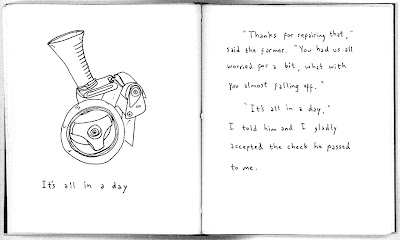 It's all in a day
"Thanks for repairing that,"
said the farmer. "You had us all
worried for a bit, what with
you almost falling off."
"It's all in a day,"
I told him and I gladly
accepted the check he passed
to me.